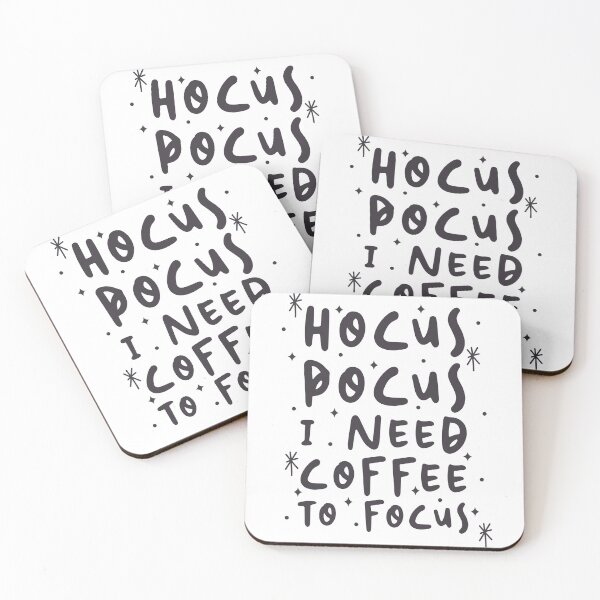 HOCUS
POCUS
HOCUS
POCUS
I NEED
COFFEE
HOCUS
POCUS
I NEED
COFFE
TO FO
HOCUS
POCUS
I NEED
COFFEE
TO FOCUS